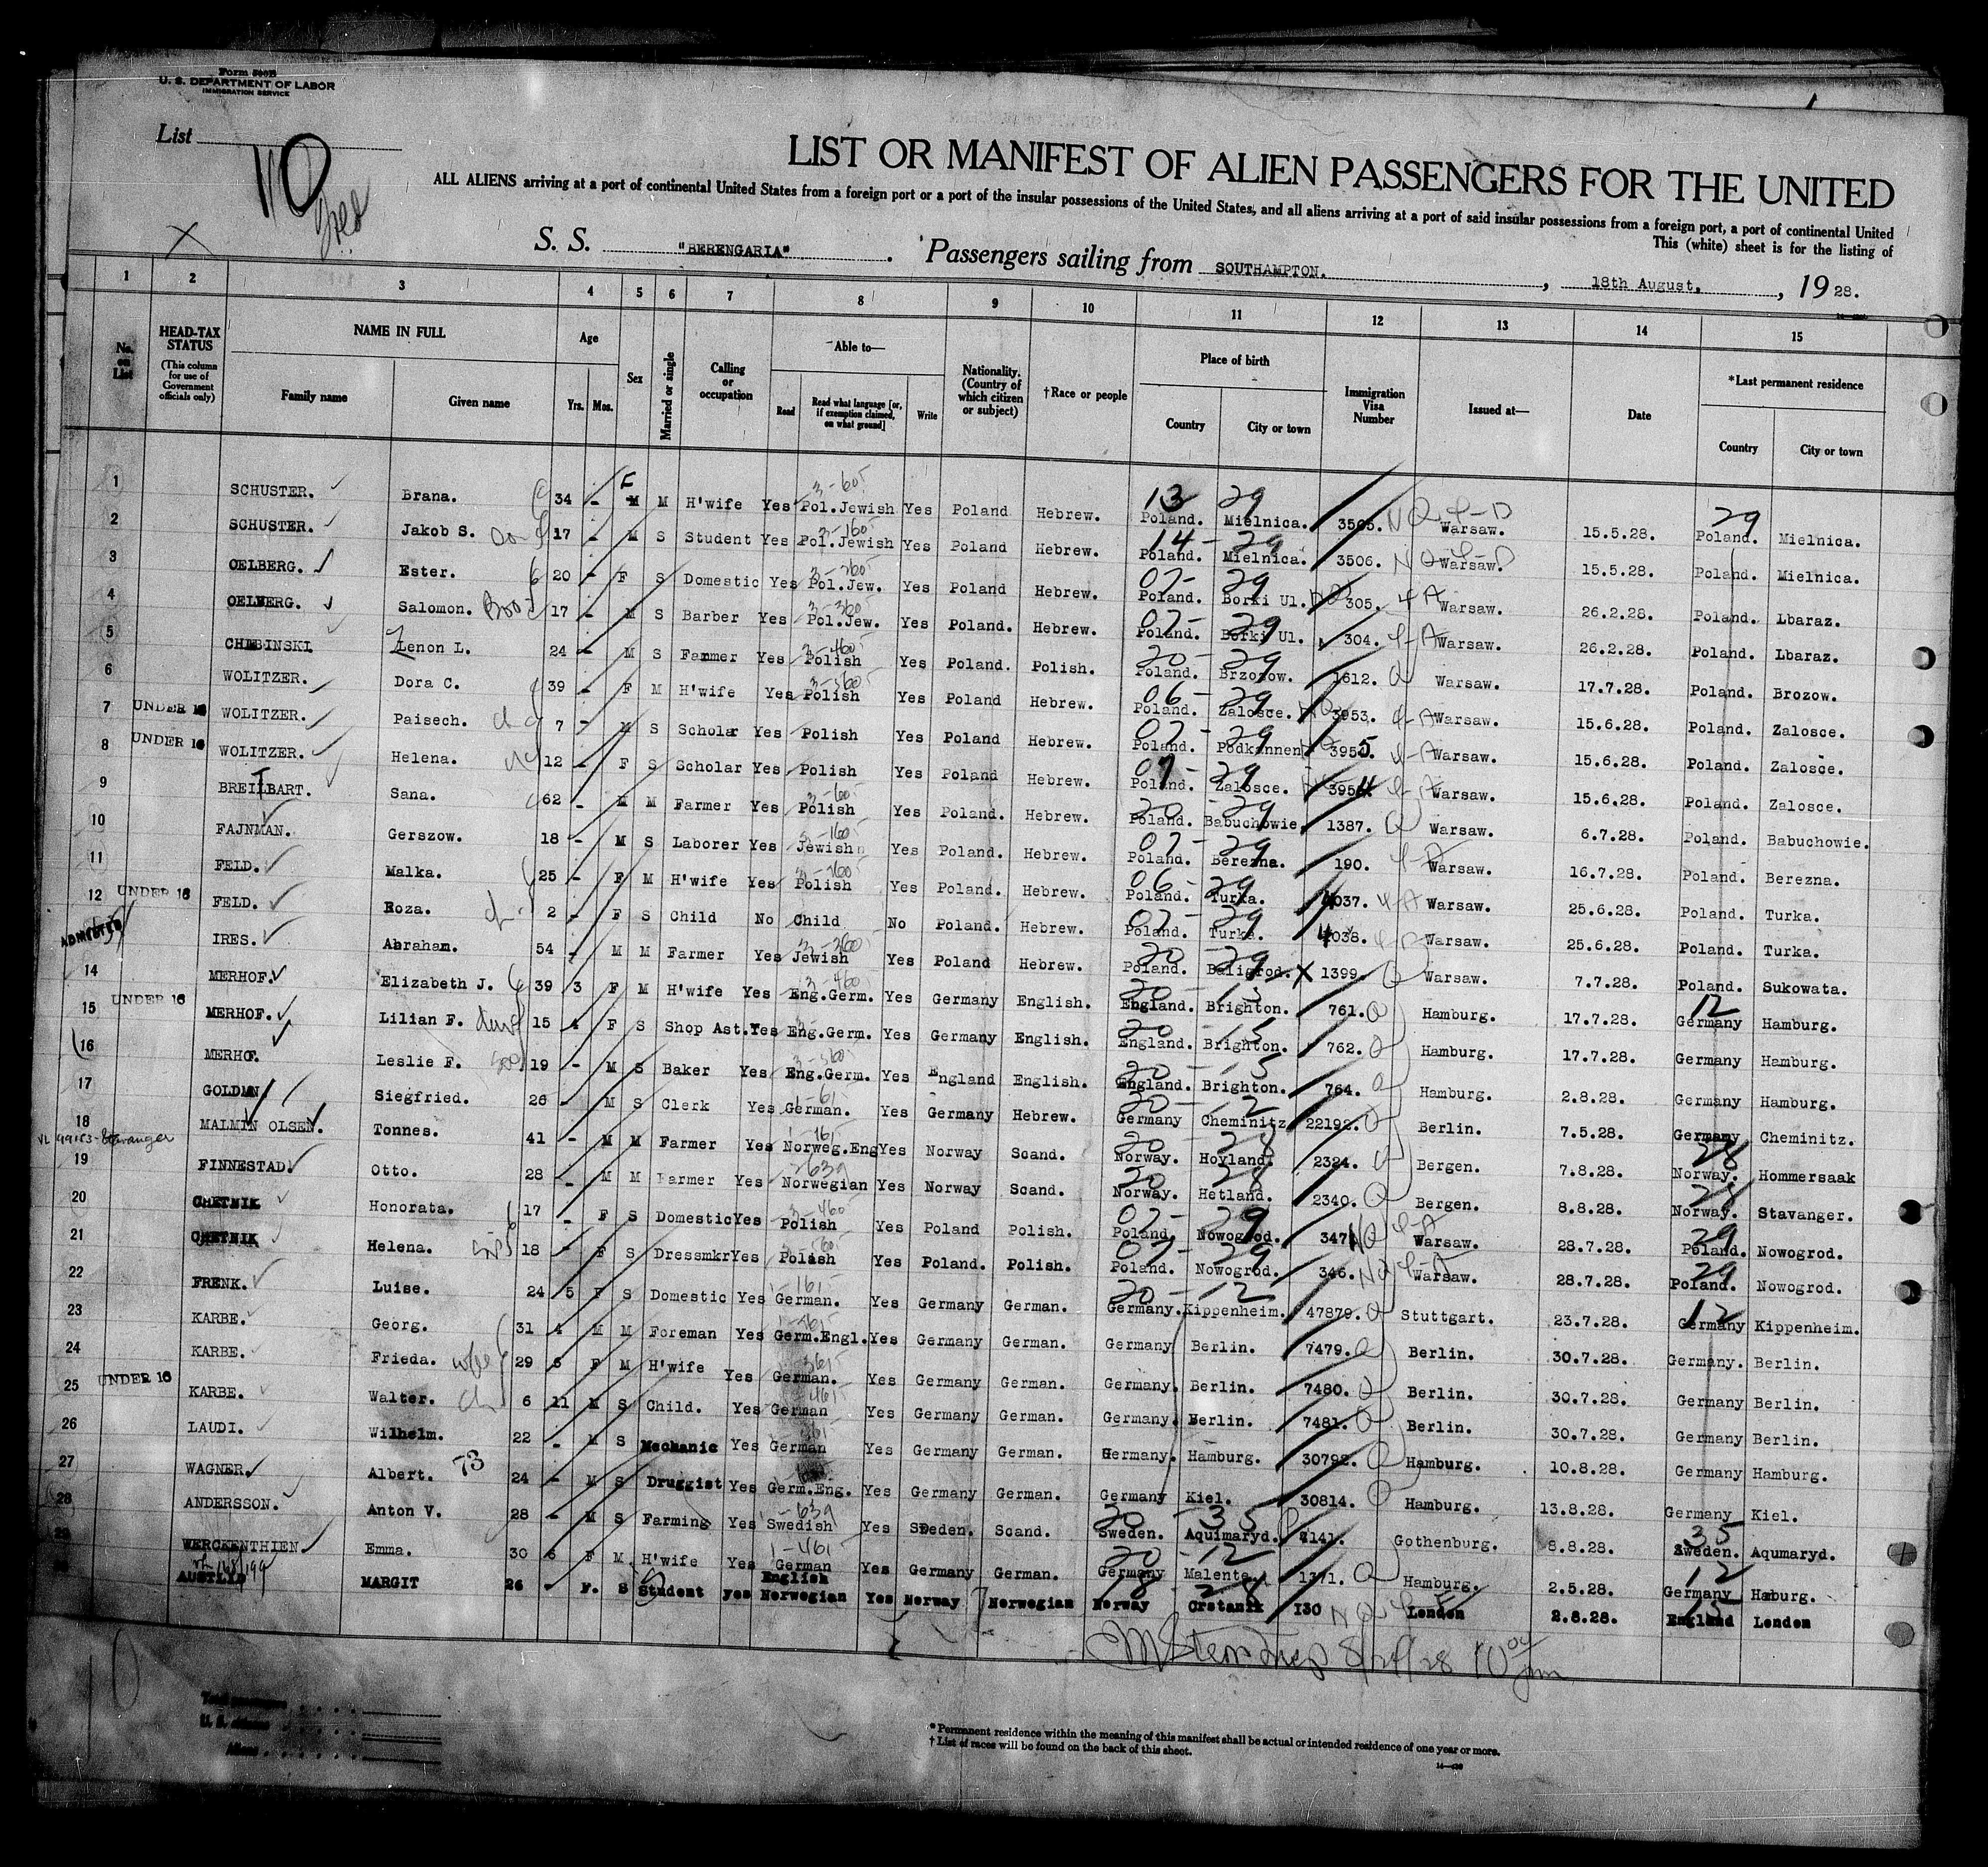 Form 500B
U. S. DEPARTMENT OF LABOR
IMMIGRATION SERVICE
List 10
LIST OR MANIFEST OF ALIEN PASSENGERS FOR THE UNITED
ALL ALIENS arriving at a port of continental United States from a foreign port or a port of the insular possessions of the United States, and all aliens arriving at a port of said insular possessions from a foreign port, a port of continental United
This (white) sheet is for the listing of
S. S. "BERENGARIA" . Passengers sailing from SOUTHAMPTON. , 18th August, , 19 28.
1 2 3 4 5 6 7 8 9 10 11 12 13 14 15
No. on List
HEAD-TAX STATUS
(This column for use of Government officials only)
NAME IN FULL
Family name
Given name
Age
Yrs. Mos.
Sex
Married or single
Calling or occupation
Able to—
Read
Read what language [or, if exemption claimed, on what ground]
Write
Nationality. (Country of which citizen or subject)
†Race or people
Place of birth
Country
City or town
Immigration Visa Number
Issued at—
Date
*Last permanent residence
Country
City or town
1 SCHUSTER. Brana. 34 - F M H'wife Yes Pol.Jewish Yes Poland Hebrew. Poland. Mielnica. 3505. Warsaw. 15.5.28. Poland. Mielnica.
2 SCHUSTER. Jakob S. 17 - M S Student Yes Pol.Jewish Yes Poland Hebrew. Poland. Mielnica. 3506. Warsaw. 15.5.28. Poland. Mielnica.
3 OELBERG. Ester. 20 - F S Domestic Yes Pol.Jew. Yes Poland Hebrew. Poland. Borki Ul. 305. Warsaw. 26.2.28. Poland. Lbaraz.
4 OELBERG. Salomon. 17 - M S Barber Yes Pol.Jew. Yes Poland. Hebrew. Poland. Borki Ul. 304. Warsaw. 26.2.28. Poland. Lbaraz.
5 CHEBINSKI Zenon L. 24 - M S Farmer Yes Polish Yes Poland. Polish. Poland. Brzozow. 1612. Warsaw. 17.7.28. Poland. Brozow.
6 WOLITZER. Dora C. 39 - F M H'wife Yes Polish Yes Poland Hebrew. Poland. Zalosce. 3953. Warsaw. 15.6.28. Poland. Zalosce.
7 UNDER 16 WOLITZER. Paisech. 7 - M S Scholar Yes Polish Yes Poland Hebrew. Poland. Podkamnen 3955. Warsaw. 15.6.28. Poland. Zalosce.
8 UNDER 16 WOLITZER. Helena. 12 - F S Scholar Yes Polish Yes Poland Hebrew. Poland. Zalosce. 3954. Warsaw. 15.6.28. Poland. Zalosce.
9 BREITBART. Sana. 62 - M M Farmer Yes Polish Yes Poland. Hebrew. Poland. Babuchowie. 1387. Warsaw. 6.7.28. Poland. Babuchowie.
10 FAJNMAN. Gerszow. 18 - M S Laborer Yes Jewish Yes Poland. Hebrew. Poland. Berezna. 190. Warsaw. 16.7.28. Poland. Berezna.
11 FELD. Malka. 25 - F M H'wife Yes Polish Yes Poland. Hebrew. Poland. Turka. 4037. Warsaw. 25.6.28. Poland. Turka.
12 UNDER 16 FELD. Roza. 2 - F S Child No Child No Poland. Hebrew. Poland. Turka. 4038. Warsaw. 25.6.28. Poland. Turka.
ADMITTED IRES. Abraham. 54 - M M Farmer Yes Jewish Yes Poland Hebrew. Poland. Baligrod. 1399. Warsaw. 7.7.28. Poland. Sukowata.
14 MERHOF. Elizabeth J. 39 3 F M H'wife Yes Eng.Germ. Yes Germany English. England. Brighton. 761. Hamburg. 17.7.28. Germany Hamburg.
15 UNDER 16 MERHOF. Lilian F. 15 4 F S Shop Ast. Yes Eng.Germ. Yes Germany English. England. Brighton. 762. Hamburg. 17.7.28. Germany Hamburg.
16 MERHOF. Leslie F. 19 - M S Baker Yes Eng.Germ. Yes England English. England. Brighton. 764. Hamburg. 2.8.28. Germany Hamburg.
17 GOLDMN Siegfried. 26 - M S Clerk Yes German. Yes Germany Hebrew. Germany Cheminitz 22192. Berlin. 7.5.28. Germany Cheminitz.
18 MALMIN OLSEN. Tonnes. 41 - M M Farmer Yes Norweg.Eng Yes Norway Scand. Norway. Hoyland. 2324. Bergen. 7.8.28. Norway. Hommersaak
19 FINNESTAD. Otto. 28 - M M Farmer Yes Norwegian Yes Norway Scand. Norway. Hetland. 2340. Bergen. 8.8.28. Norway. Stavanger.
20 CHETNIK Honorata. 17 - F S Domestic Yes Polish Yes Poland Polish. Poland. Nowogrod. 347. Warsaw. 28.7.28. Poland. Nowogrod.
21 CHETNIK Helena. 18 - F S Dressmkr Yes Polish Yes Poland. Polish. Poland. Nowogrod. 346. Warsaw. 28.7.28. Poland. Nowogrod.
22 FRENK. Luise. 24 5 F S Domestic Yes German. Yes Germany German. Germany. Kippenheim. 47879. Stuttgart. 23.7.28. Germany Kippenheim.
23 KARBE. Georg. 31 4 M M Foreman Yes Germ.Engl. Yes Germany German. Germany Berlin. 7479. Berlin. 30.7.28. Germany. Berlin.
24 KARBE. Frieda. wife 29 6 F M H'wife Yes German. Yes Germany German. Germany. Berlin. 7480. Berlin. 30.7.28. Germany Berlin.
25 UNDER 16 KARBE. Walter. 6 11 M S Child. Yes German Yes Germany German. Germany. Berlin. 7481. Berlin. 30.7.28. Germany Berlin.
26 LAUDI. Wilhelm. 22 - M S Mechanic Yes German Yes Germany German. Germany. Hamburg. 30792. Hamburg. 10.8.28. Germany Hamburg.
27 WAGNER. Albert. 73 24 - M S Druggist Yes Germ.Eng. Yes Germany German. Germany Kiel. 30814. Hamburg. 13.8.28. Germany Kiel.
28 ANDERSSON. Anton V. 28 - M S Farming Yes Swedish Yes Sweden. Scand. Sweden. Aquimaryd. 4141. Gothenburg. 8.8.28. Sweden. Aqumaryd.
29 WERCKENTHIEN. Emma. 30 6 F M H'wife Yes German Yes Germany German. Germany Malente. 1371. Hamburg. 2.5.28. Germany Hamburg.
30 MARGIT 26 - F. S Student yes English Norwegian Yes Norway Norwegian Norway 130 London 2.8.28. England London
10
Total passengers
U. S. citizens
Aliens
* Permanent residence within the meaning of this manifest shall be actual or intended residence of one year or more.
† List of races will be found on the back of this sheet.